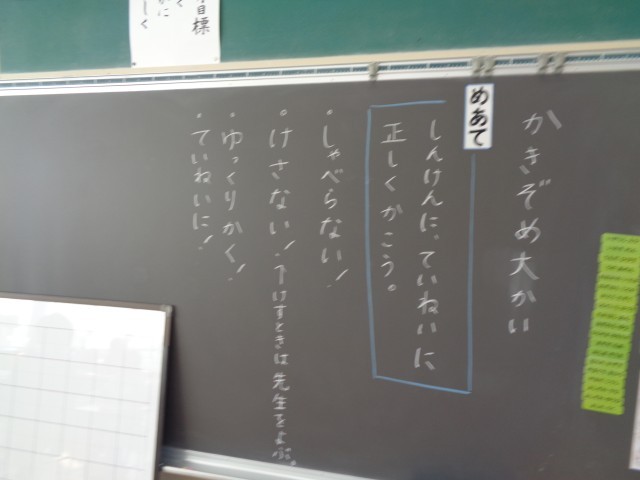 かきぞめ大かい
めあて
しんけんに、ていねいに
正しくかこう。
・しゃべらない!
・けさない!・下けすときは先生をよぶ。
・ゆっくりかく!
・ていねいに!
目標
く
に
しく